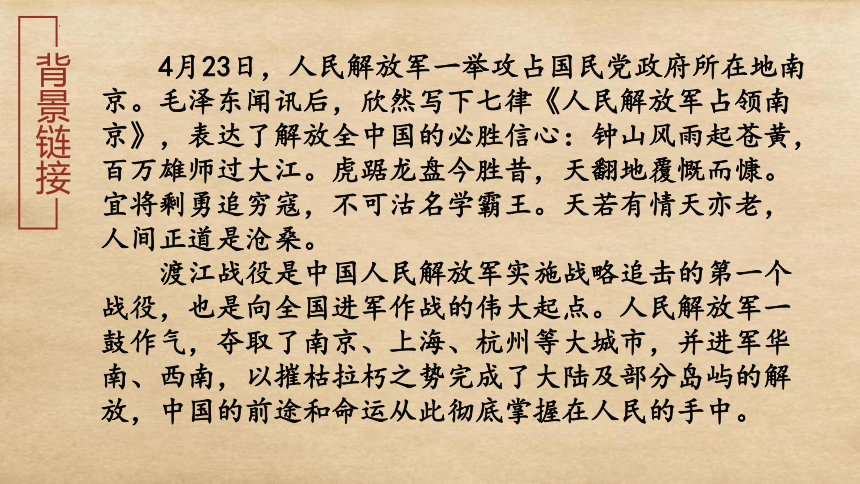 背景链接
4月23日，人民解放军一举攻占国民党政府所在地南
京。毛泽东闻讯后，欣然写下七律《人民解放军占领南
京》，表达了解放全中国的必胜信心：钟山风雨起苍黄，
百万雄师过大江。虎踞龙盘今胜昔，天翻地覆慨而慷。
宜将剩勇追穷寇，不可沽名学霸王。天若有情天亦老，
人间正道是沧桑。
渡江战役是中国人民解放军实施战略追击的第一个
战役，也是向全国进军作战的伟大起点。人民解放军一
鼓作气，夺取了南京、上海、杭州等大城市，并进军华
南、西南，以摧枯拉朽之势完成了大陆及部分岛屿的解
放，中国的前途和命运从此彻底掌握在人民的手中。